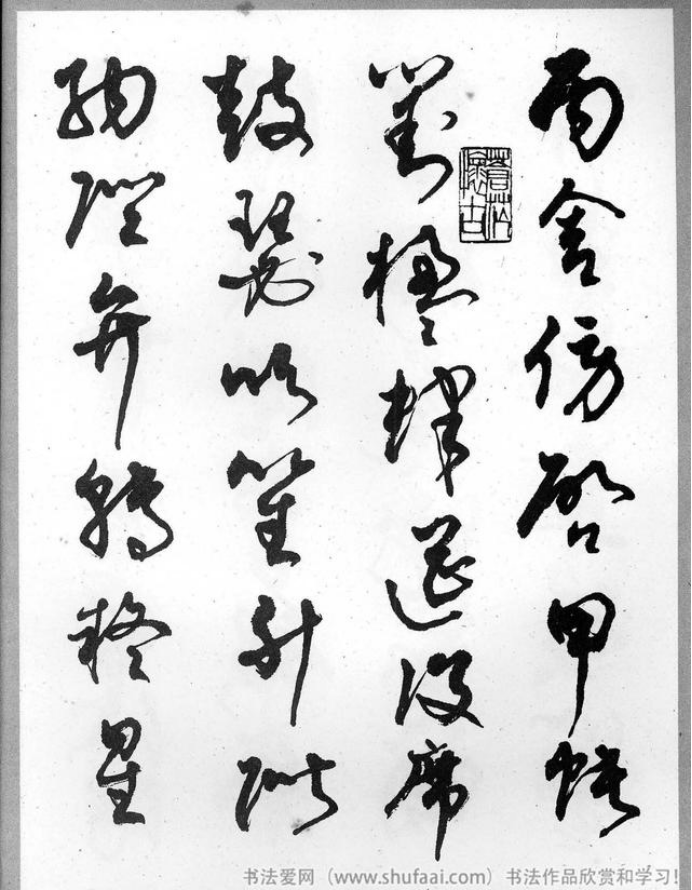 丙舍傍啓甲帳
對楹肆筵設席
鼓瑟吹笙升階
納陛弁轉疑星
蒼茫
懷古
书法爱网（www.shufaai.com）书法作品欣赏和学习！